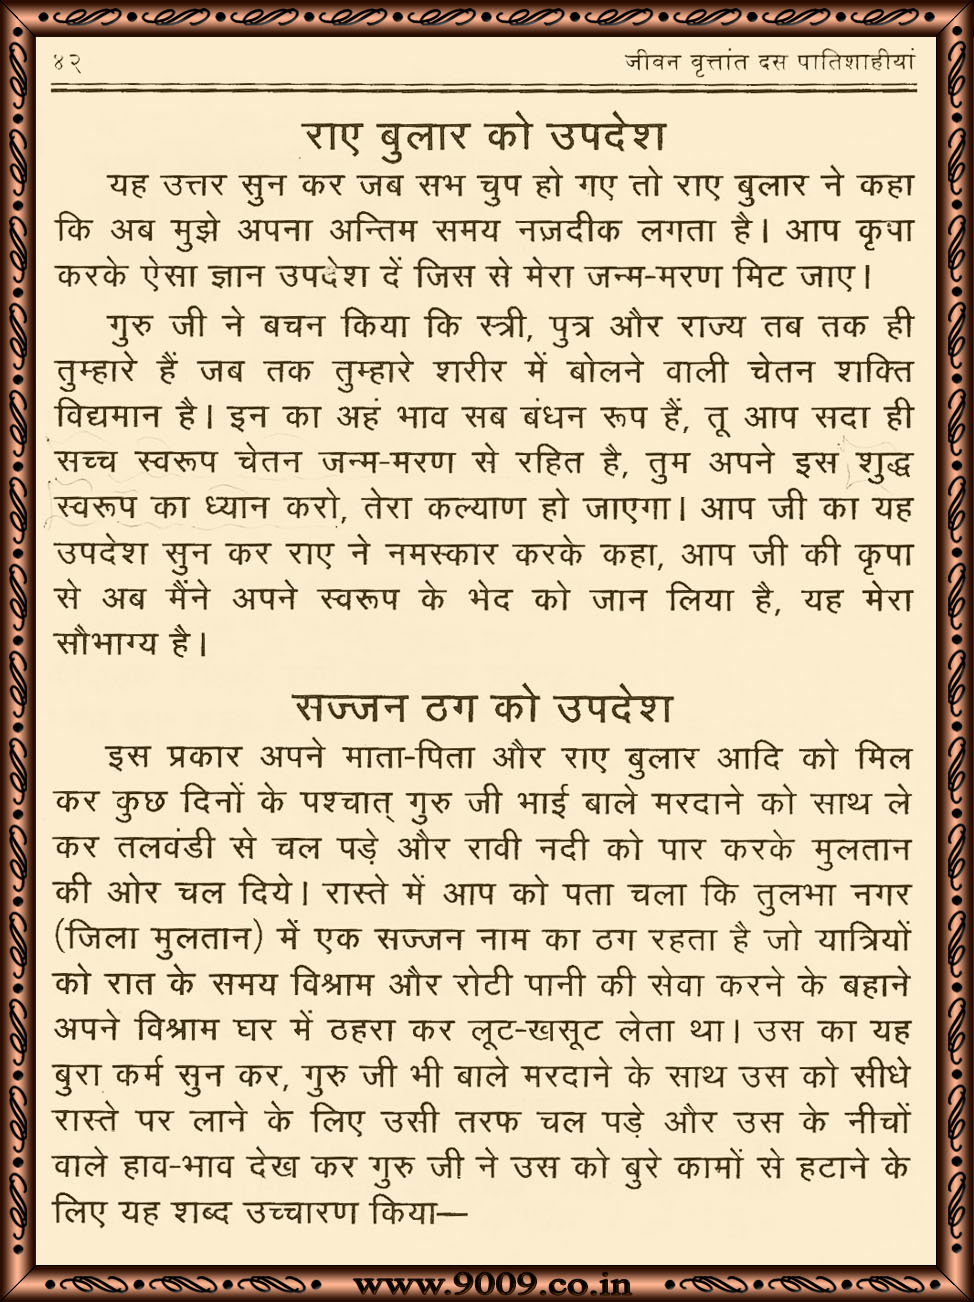 ४२
जीवन वृत्तांत दस पातिशाहीयां
राए बुलार को उपदेश
यह उत्तर सुन कर जब सभ चुप हो गए तो राए बुलार ने कहा
कि अब मुझे अपना अन्तिम समय नज़दीक लगता है। आप कृपा
करके ऐसा ज्ञान उपदेश दें जिस से मेरा जन्म-मरण मिट जाए।
गुरु जी ने बचन किया कि स्त्री, पुत्र और राज्य तब तक ही
तुम्हारे हैं जब तक तुम्हारे शरीर में बोलने वाली चेतन शक्ति
विद्यमान है। इन का अहं भाव सब बंधन रूप हैं, तू आप सदा ही
सच्च स्वरूप चेतन जन्म-मरण से रहित है, तुम अपने इस शुद्ध
स्वरूप का ध्यान करो, तेरा कल्याण हो जाएगा। आप जी का यह
उपदेश सुन कर राए ने नमस्कार करके कहा, आप जी की कृपा
से अब मैंने अपने स्वरूप के भेद को जान लिया है, यह मेरा
सौभाग्य है।
सज्जन ठग को उपदेश
इस प्रकार अपने माता-पिता और राए बुलार आदि को मिल
कर कुछ दिनों के पश्चात् गुरु जी भाई बाले मरदाने को साथ ले
कर तलवंडी से चल पड़े और रावी नदी को पार करके मुलतान
की ओर चल दिये। रास्ते में आप को पता चला कि तुलभा नगर
(जिला मुलतान) में एक सज्जन नाम का ठग रहता है जो यात्रियों
को रात के समय विश्राम और रोटी पानी की सेवा करने के बहाने
अपने विश्राम घर में ठहरा कर लूट-खसूट लेता था। उस का यह
बुरा कर्म सुन कर, गुरु जी भी बाले मरदाने के साथ उस को सीधे
रास्ते पर लाने के लिए उसी तरफ चल पड़े और उस के नीचों
वाले हाव-भाव देख कर गुरु जी ने उस को बुरे कामों से हटाने के
लिए यह शब्द उच्चारण किया—
www.9009.co.in